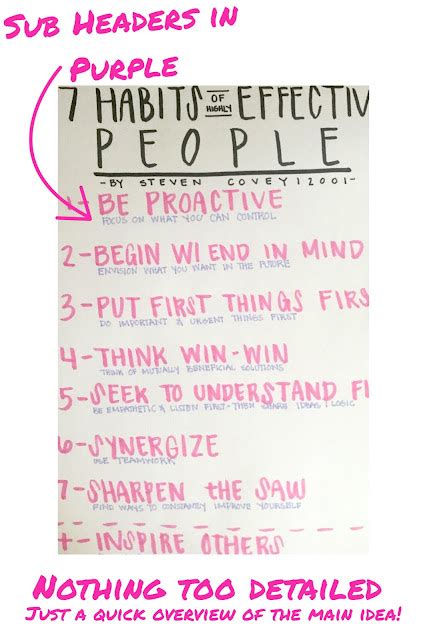 Sub Headers in
Purple
7 HABITS OF HIGHLY EFFECTIV
PEOPLE
-BY STEVEN COVEY | 2001-
1-BE PROACTIVE
FOCUS ON WHAT YOU CAN CONTROL
2-BEGIN W/ END IN MIND
ENVISION WHAT YOU WANT IN THE FUTURE
3-PUT FIRST THINGS FIRS
DO IMPORTANT & URGENT THINGS FIRST
4-THINK WIN-WIN
THINK OF MUTUALLY BENEFICIAL SOLUTIONS
5-SEEK TO UNDERSTAND FI
BE EMPATHETIC & LISTEN FIRST-THEN SHARE IDEAS & LOGIC
6-SYNERGIZE
USE TEAMWORK
7-SHARPEN the SAW
FIND WAYS TO CONSTANTLY IMPROVE YOURSELF
+-INSPIRE OTHERS
Nothing too detailed
Just a quick overview of the main idea!